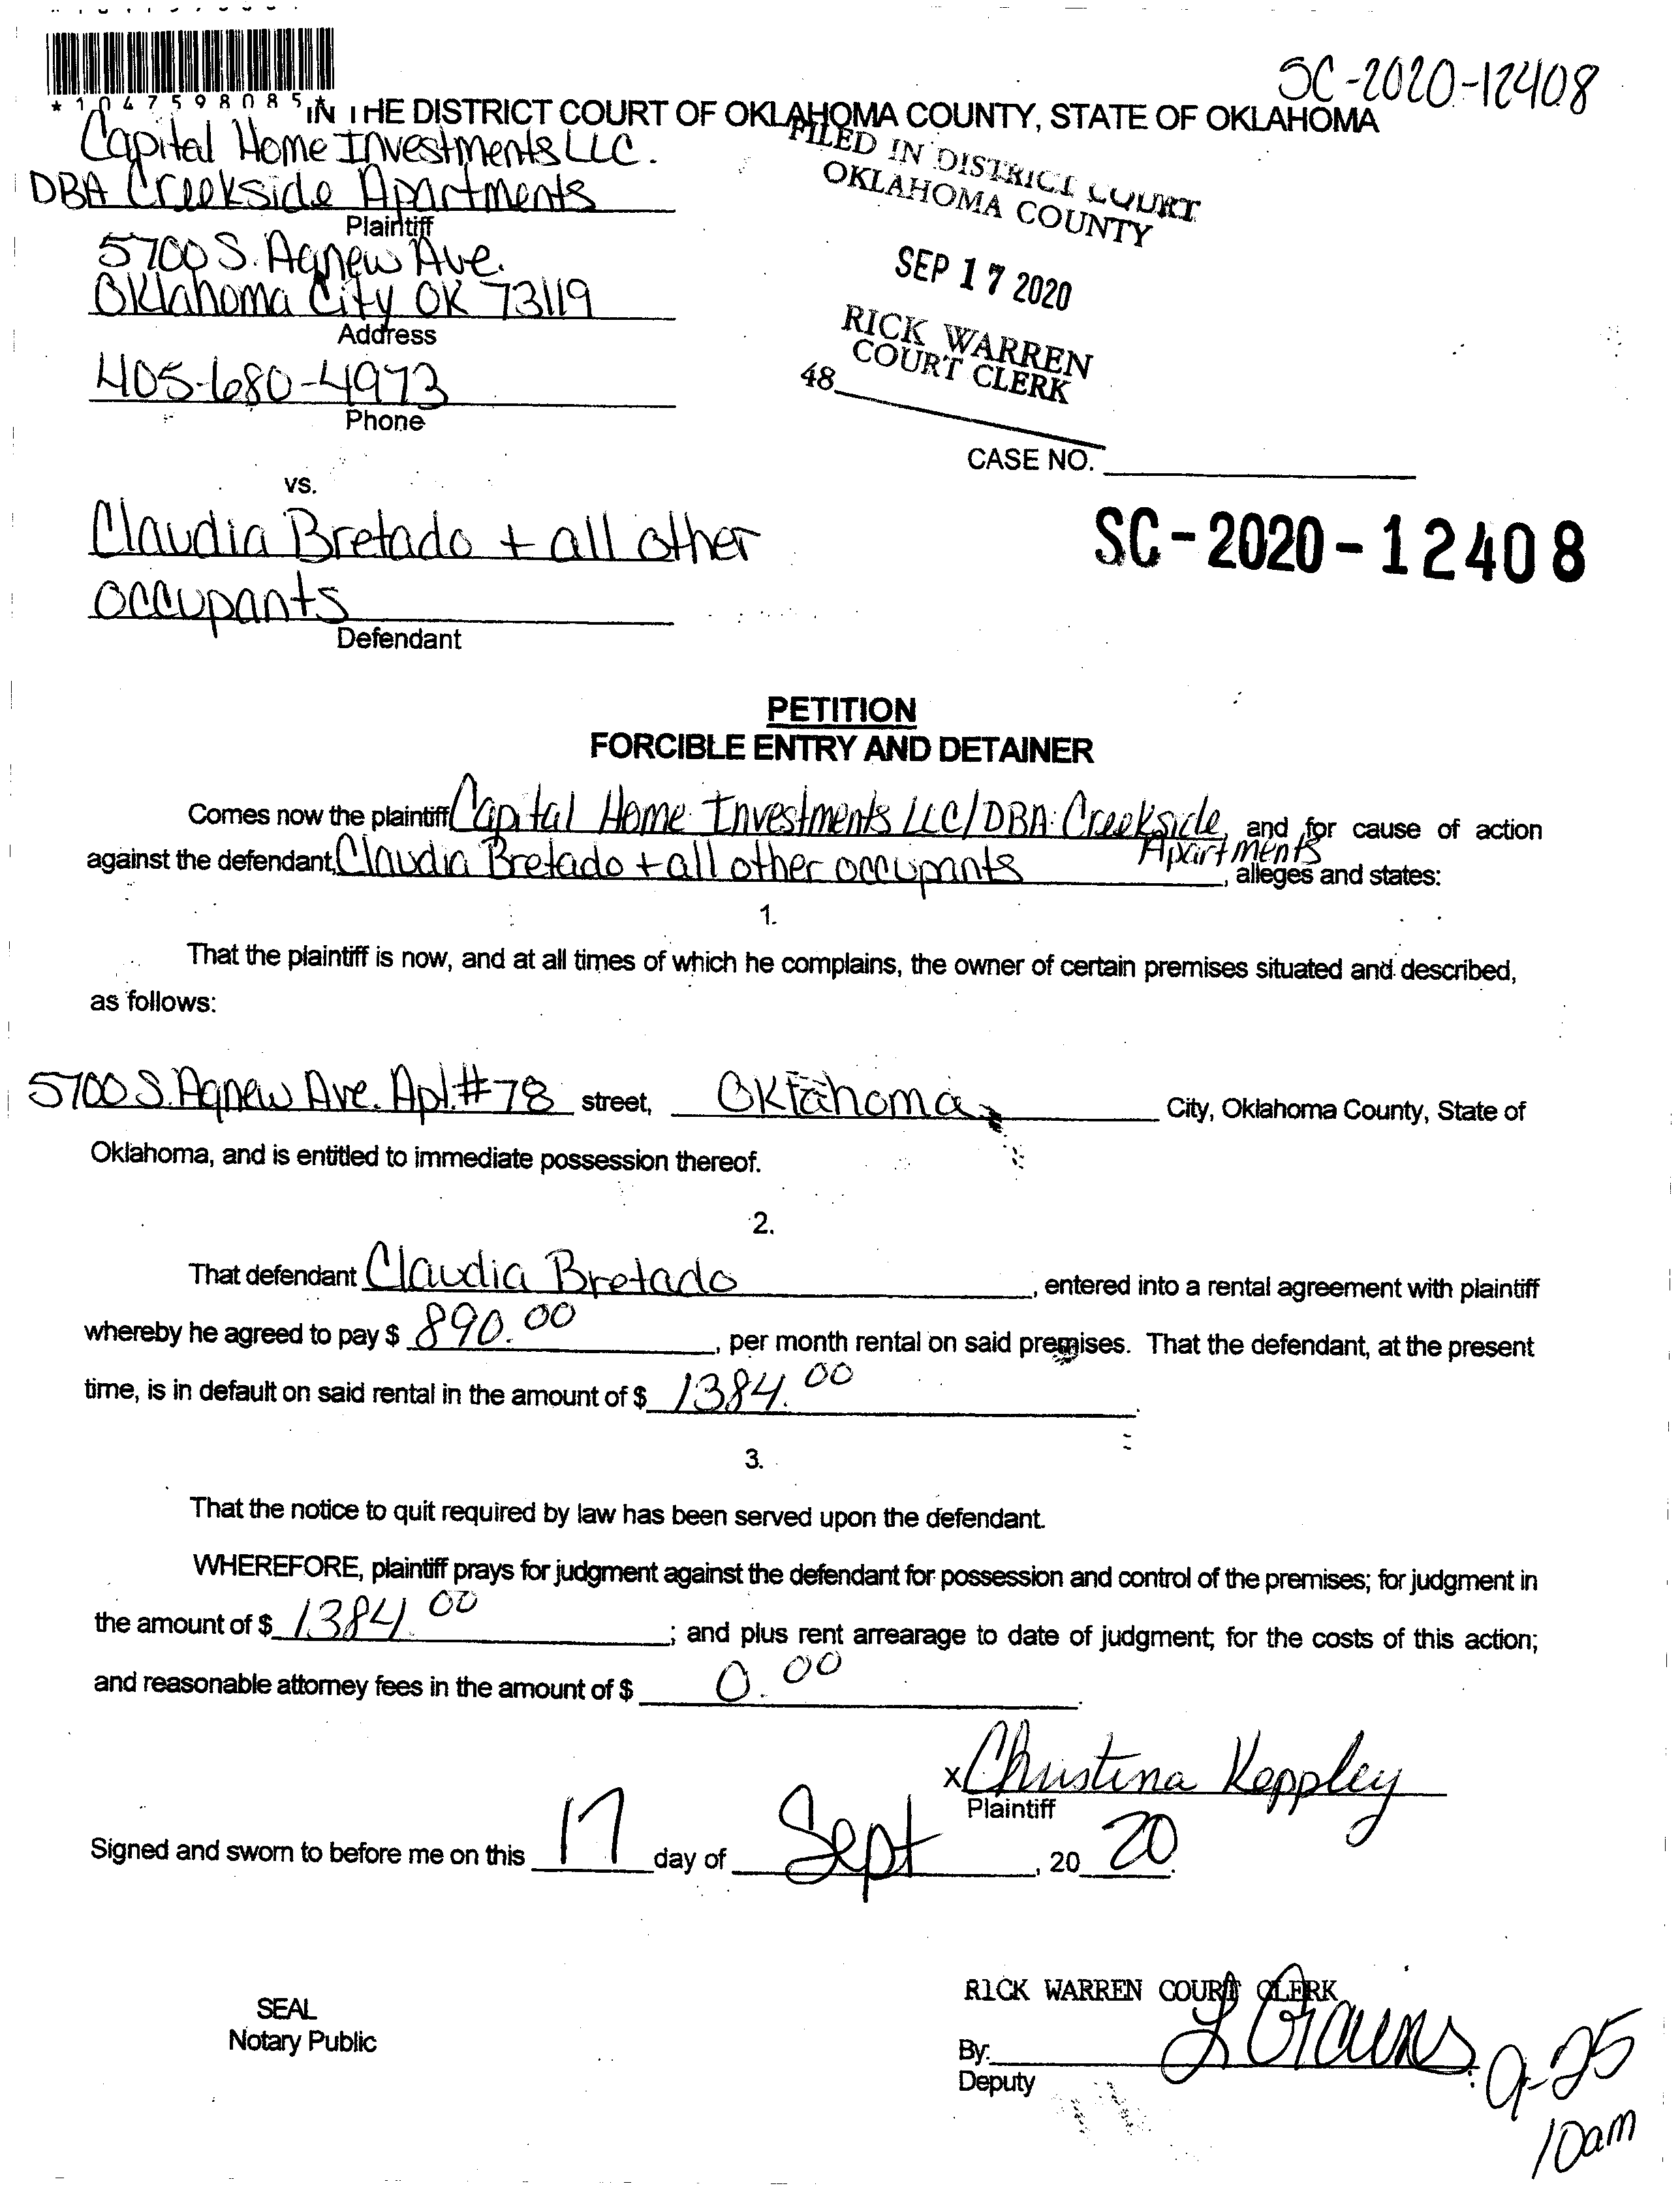 *1047598085*
SC-2020-12408
IN THE DISTRICT COURT OF OKLAHOMA COUNTY, STATE OF OKLAHOMA
Capital Home Investments LLC.
DBA Creekside Apartments
Plaintiff
5700 S. Agnew Ave.
Oklahoma City OK 73119
Address
405-680-4973
Phone
FILED IN DISTRICT COURT
OKLAHOMA COUNTY
SEP 17 2020
RICK WARREN
COURT CLERK
48
CASE NO.
vs.
SC-2020-12408
Claudia Bretado + all other
occupants
Defendant
PETITION
FORCIBLE ENTRY AND DETAINER
Comes now the plaintiff Capital Home Investments LLC/DBA: Creekside, and for cause of action
Apartments
against the defendant, Claudia Bretado + all other occupants, alleges and states:
1.
That the plaintiff is now, and at all times of which he complains, the owner of certain premises situated and described,
as follows:
5700 S. Agnew Ave. Apt. #78 street, Oklahoma City, Oklahoma County, State of
Oklahoma, and is entitled to immediate possession thereof.
2.
That defendant Claudia Bretado, entered into a rental agreement with plaintiff
whereby he agreed to pay $ 890.00, per month rental on said premises. That the defendant, at the present
time, is in default on said rental in the amount of $ 1384.00.
3.
That the notice to quit required by law has been served upon the defendant.
WHEREFORE, plaintiff prays for judgment against the defendant for possession and control of the premises; for judgment in
the amount of $ 1384.00; and plus rent arrearage to date of judgment; for the costs of this action;
and reasonable attorney fees in the amount of $ 0.00.
x Christina Keppley
Plaintiff
Signed and sworn to before me on this 17 day of Sept, 20 20.
RICK WARREN COURT CLERK
SEAL
Notary Public
By:
Deputy
9-25
10am